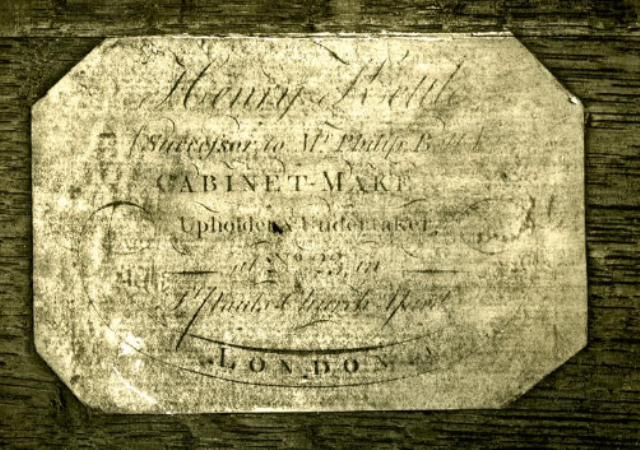 Henry Kettle
(Successor to Mr Philip Bell)
CABINET-MAKE
Upholder & Undertaker,
at No. 23, in
St Pauls Church Yard
LONDON